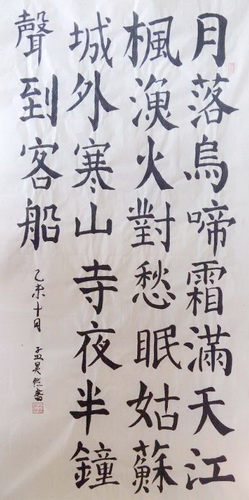 月落烏啼霜滿天江
楓漁火對愁眠姑蘇
城外寒山寺夜半鐘
聲到客船
乙未十月 孟 書